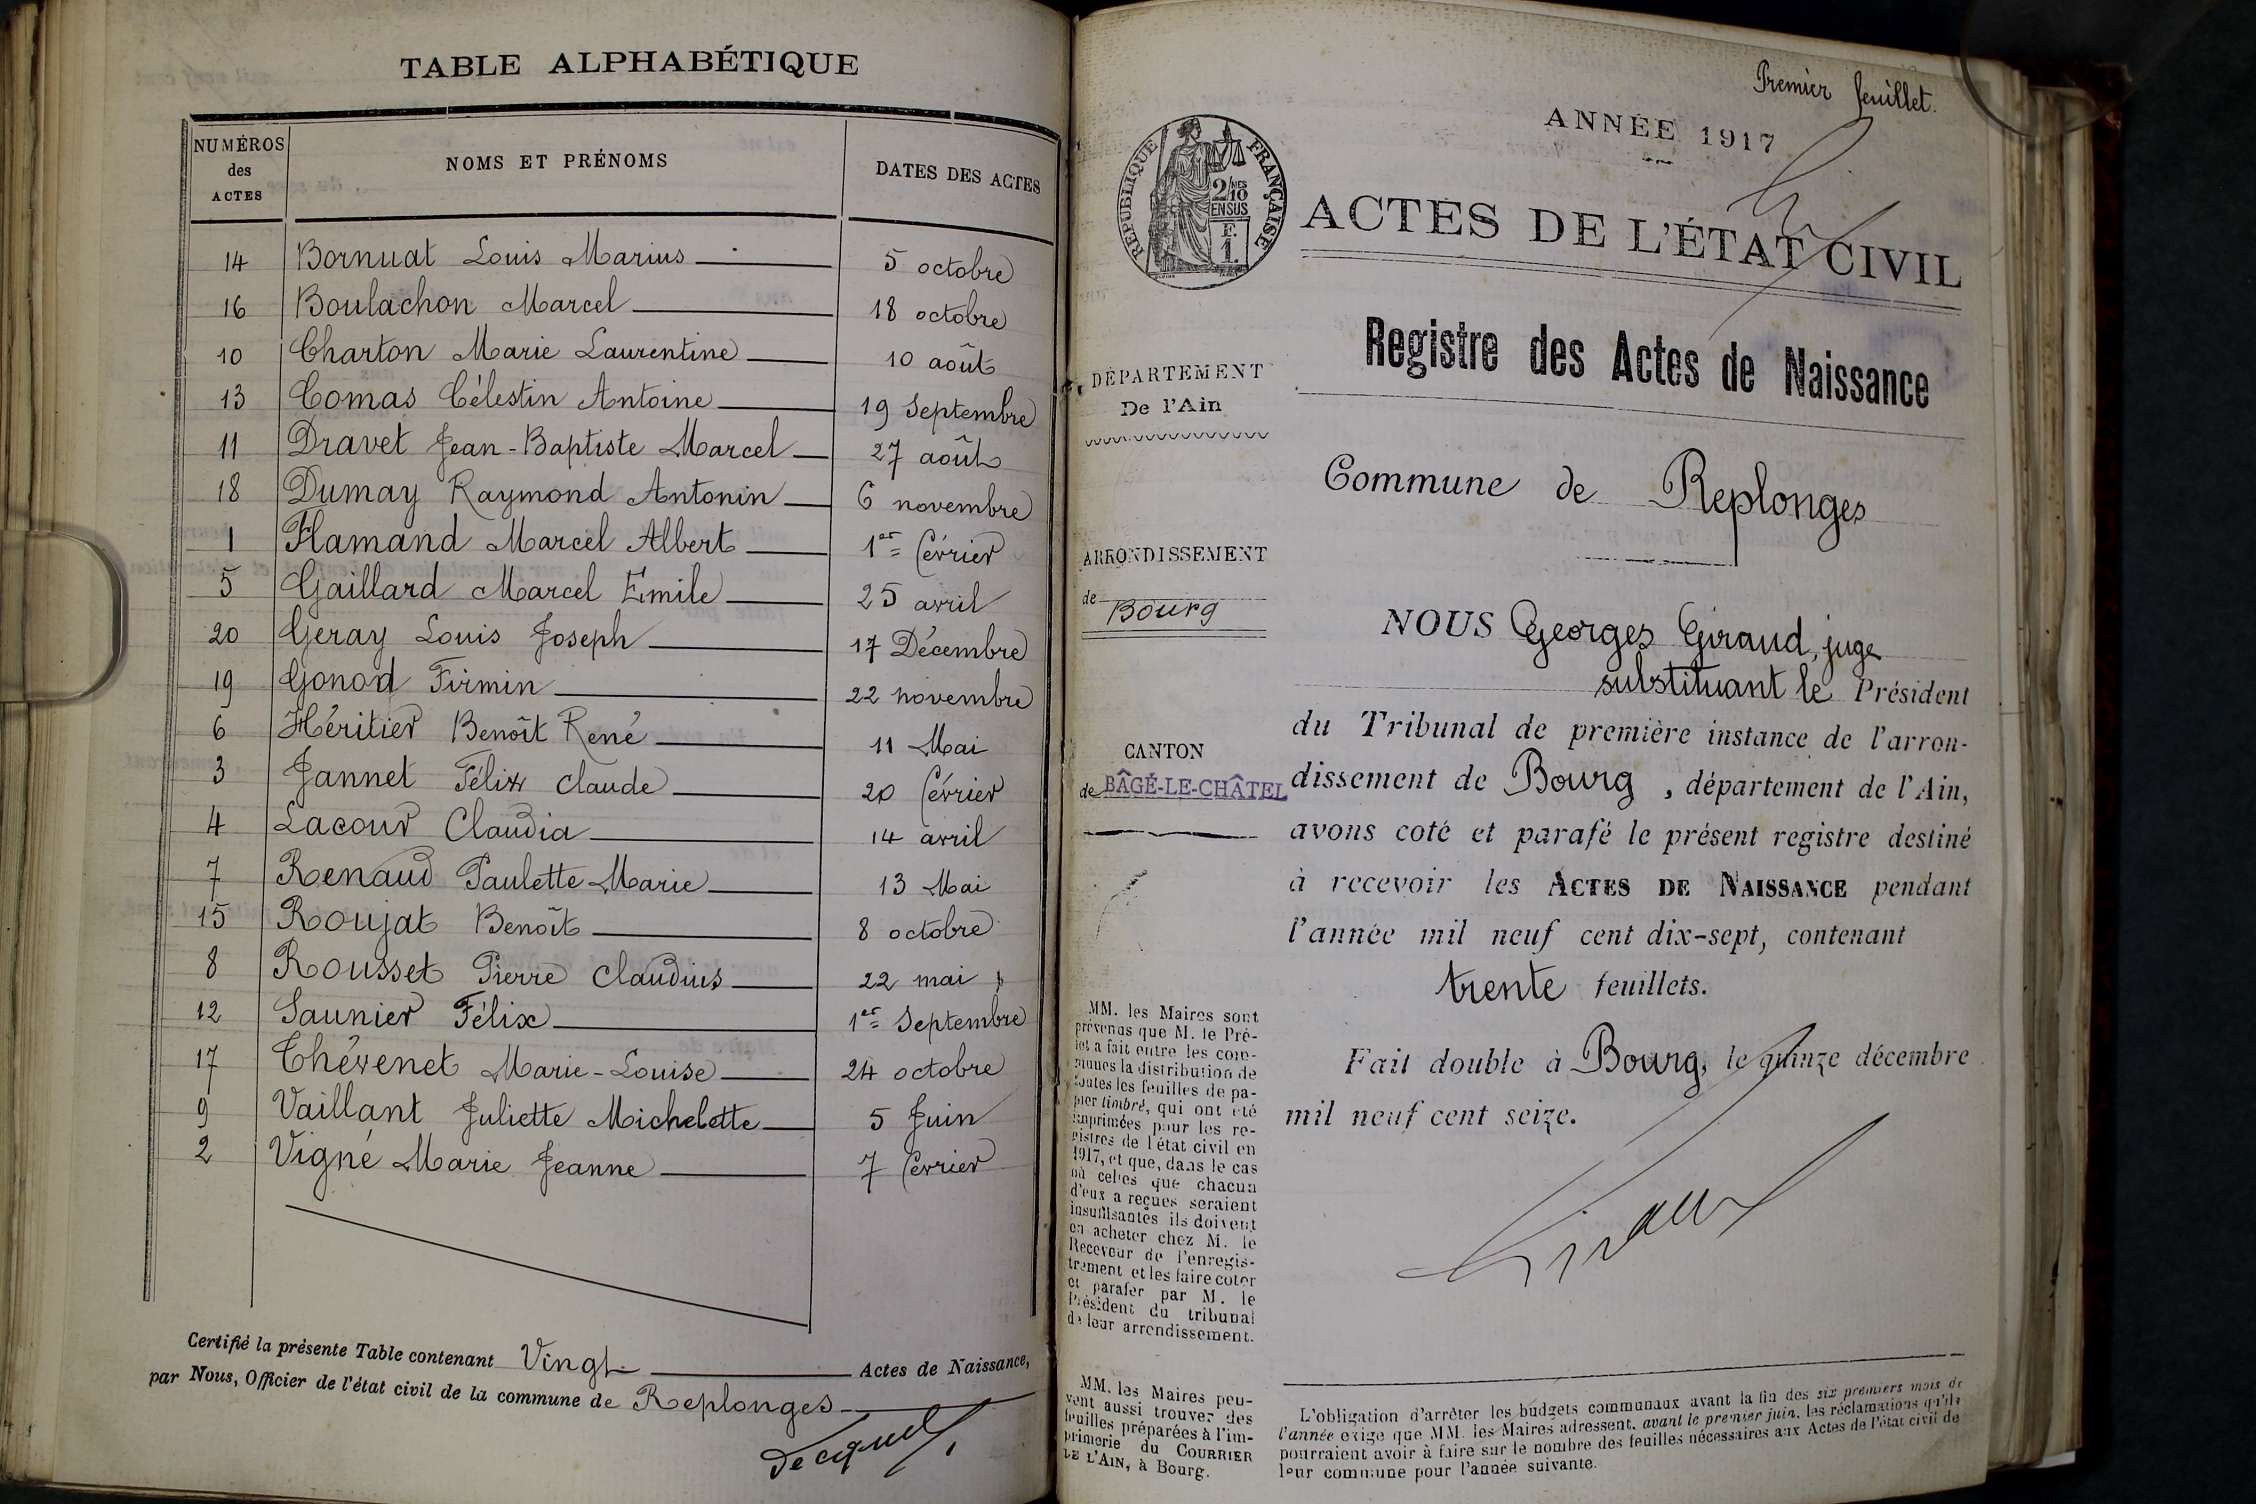 TABLE ALPHABÉTIQUE
NUMÉROS des ACTES NOMS ET PRÉNOMS DATES DES ACTES
14 Bornuat Louis Marius 5 octobre
16 Boulachon Marcel 18 octobre
10 Charton Marie Laurentine 10 août
13 Comas Célestin Antoine 19 Septembre
11 Dravet Jean-Baptiste Marcel 27 août
18 Dumay Raymond Antonin 6 novembre
1 Flamand Marcel Albert 1er février
5 Gaillard Marcel Emile 25 avril
20 Geray Louis Joseph 17 Décembre
19 Gonod Firmin 22 novembre
6 Héritier Benoît René 11 Mai
3 Jannet Félix Claude 20 février
4 Lacour Claudia 14 avril
7 Renaud Paulette Marie 13 Mai
15 Roujat Benoît 8 octobre
8 Rousset Pierre Claudius 22 mai
12 Saunier Félix 1er Septembre
17 Thévenet Marie-Louise 24 octobre
9 Vaillant Juliette Michelette 5 Juin
2 Vigné Marie Jeanne 7 février
Certifié la présente Table contenant Vingt Actes de Naissance,
par Nous, Officier de l'état civil de la commune de Replonges
Premier feuillet.
ANNÉE 1917
RÉPUBLIQUE FRANÇAISE
2/10 NES
EN SUS
F.
1.
ACTES DE L'ÉTAT CIVIL
Registre des Actes de Naissance
DÉPARTEMENT
De l'Ain
Commune de Replonges
ARRONDISSEMENT
de Bourg
CANTON
de BÂGÉ-LE-CHÂTEL
NOUS Georges Giraud, juge
substituant le Président
du Tribunal de première instance de l'arron-
dissement de Bourg, département de l'Ain,
avons coté et parafé le présent registre destiné
à recevoir les ACTES DE NAISSANCE pendant
l'année mil neuf cent dix-sept, contenant
trente feuillets.
Fait double à Bourg, le quinze décembre
mil neuf cent seize.
Giraud
MM. les Maires sont
prévenus que M. le Pré-
fet a fait entre les com-
munes la distribution de
toutes les feuilles de pa-
pier timbré, qui ont été
imprimées pour les re-
gistres de l'état civil en
1917, et que, dans le cas
où celles que chacun
d'eux a reçues seraient
insuffisantes ils doivent
en acheter chez M. le
Receveur de l'enregis-
trement et les faire coter
et parafer par M. le
Président du tribunal
de leur arrondissement.
MM. les Maires peu-
vent aussi trouver des
feuilles préparées à l'im-
primerie du COURRIER
DE L'AIN, à Bourg.
L'obligation d'arrêter les budgets communaux avant la fin des six premiers mois de
l'année exige que MM. les Maires adressent, avant le premier juin, les réclamations qu'ils
pourraient avoir à faire sur le nombre des feuilles nécessaires aux Actes de l'état civil de
leur commune pour l'année suivante.